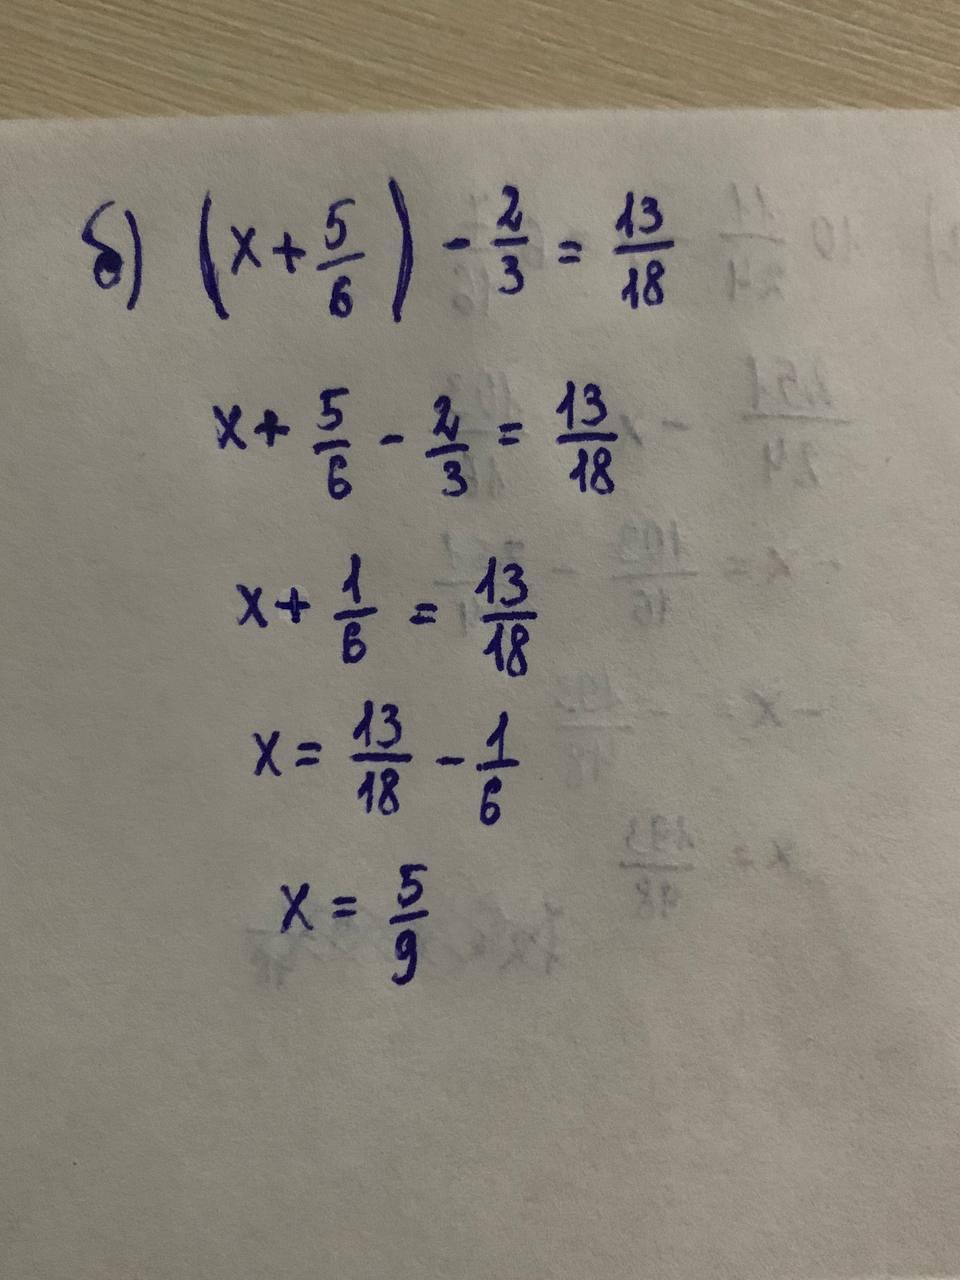 б) (x + 5/6) - 2/3 = 13/18
x + 5/6 - 2/3 = 13/18
x + 1/6 = 13/18
x = 13/18 - 1/6
x = 5/9